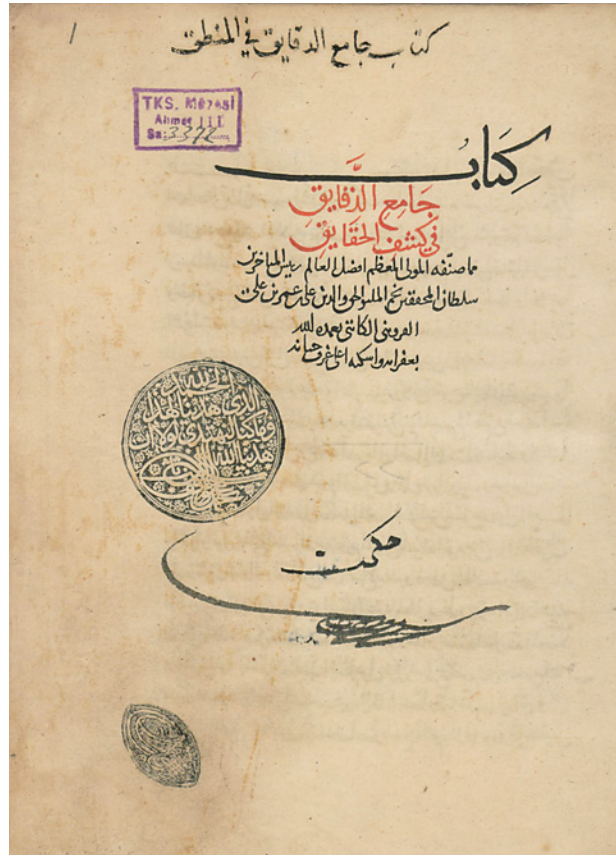 ١
كتاب جامع الدقايق في المنطق
TKS. Müzesi
Ahmet III
Sa: 3372
كِتَاب
جَامِع الدَّقايق
في كشف الحقَايق
مما صنّفه المولى المعظم افضل العالم رييس المتاخرين
سلطان المحققين نجم الملة والحق والدين على بن عمر بن على
القزويني الكاتبي تغمده الله
بغفرانه واسكنه اعلى غرف جنانه
الحمد لله
الذي هدينا لهذا
وما كنا لنهتدي لولا ان
هدينا الله
حكمت